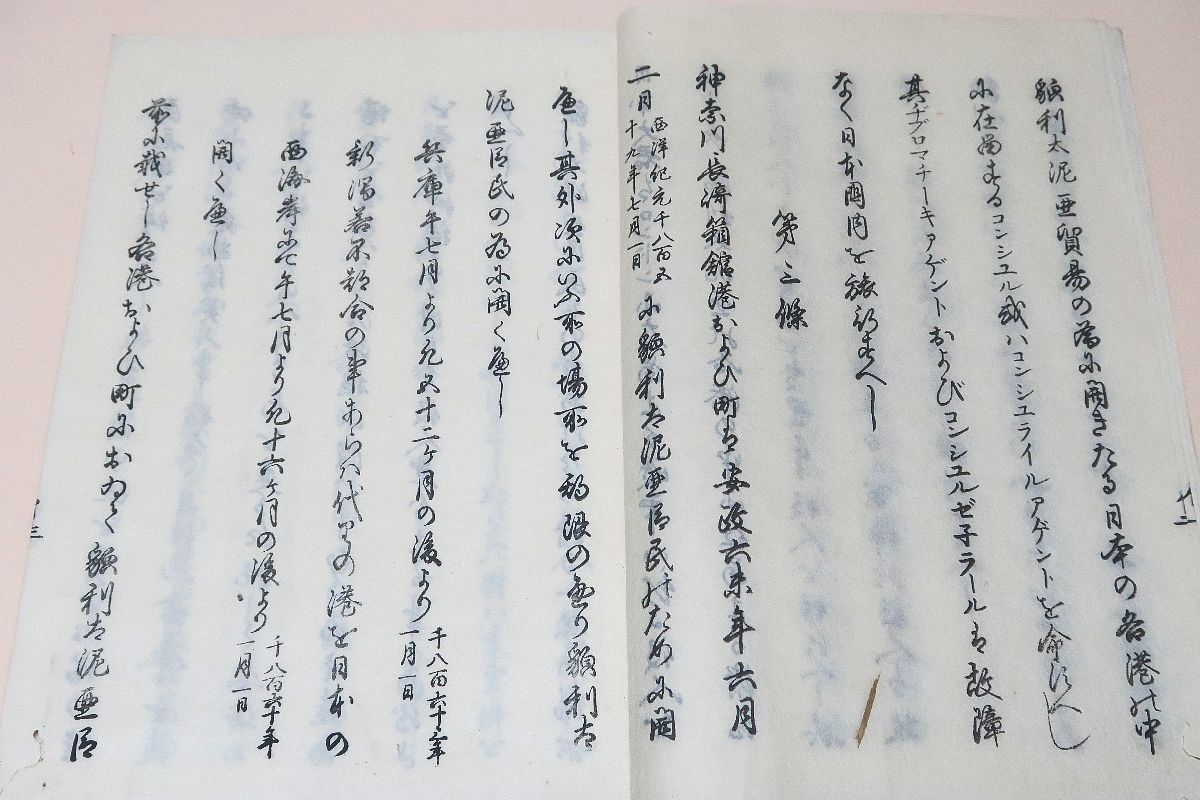 額利太泥亜貿易の為に開きたる日本の各港の中
に在留するコンシユル或ハコンシユライルアゲントを命すへし
其ヂプロマチーキアゲントおよびコンシユルゼ子ラールは故障
なく日本国内を旅行すへし
第三條
神奈川長崎箱館港および町は安政六未年六月
二月西洋紀元千八百五十九年七月一日に額利太泥亜臣民のために開
へし其外次にいふ所の場所を期限の通り額利太
泥亜臣民の為に開くへし
兵庫午七月より凡五十二ヶ月の後より千八百六十三年一月一日
新潟若不都合の事あらハ代りの港を日本の
西海岸に午七月より凡十六ヶ月の後より千八百六十年一月一日
開くへし
前に載せし各港および町において額利太泥亜臣
廿二
廿三